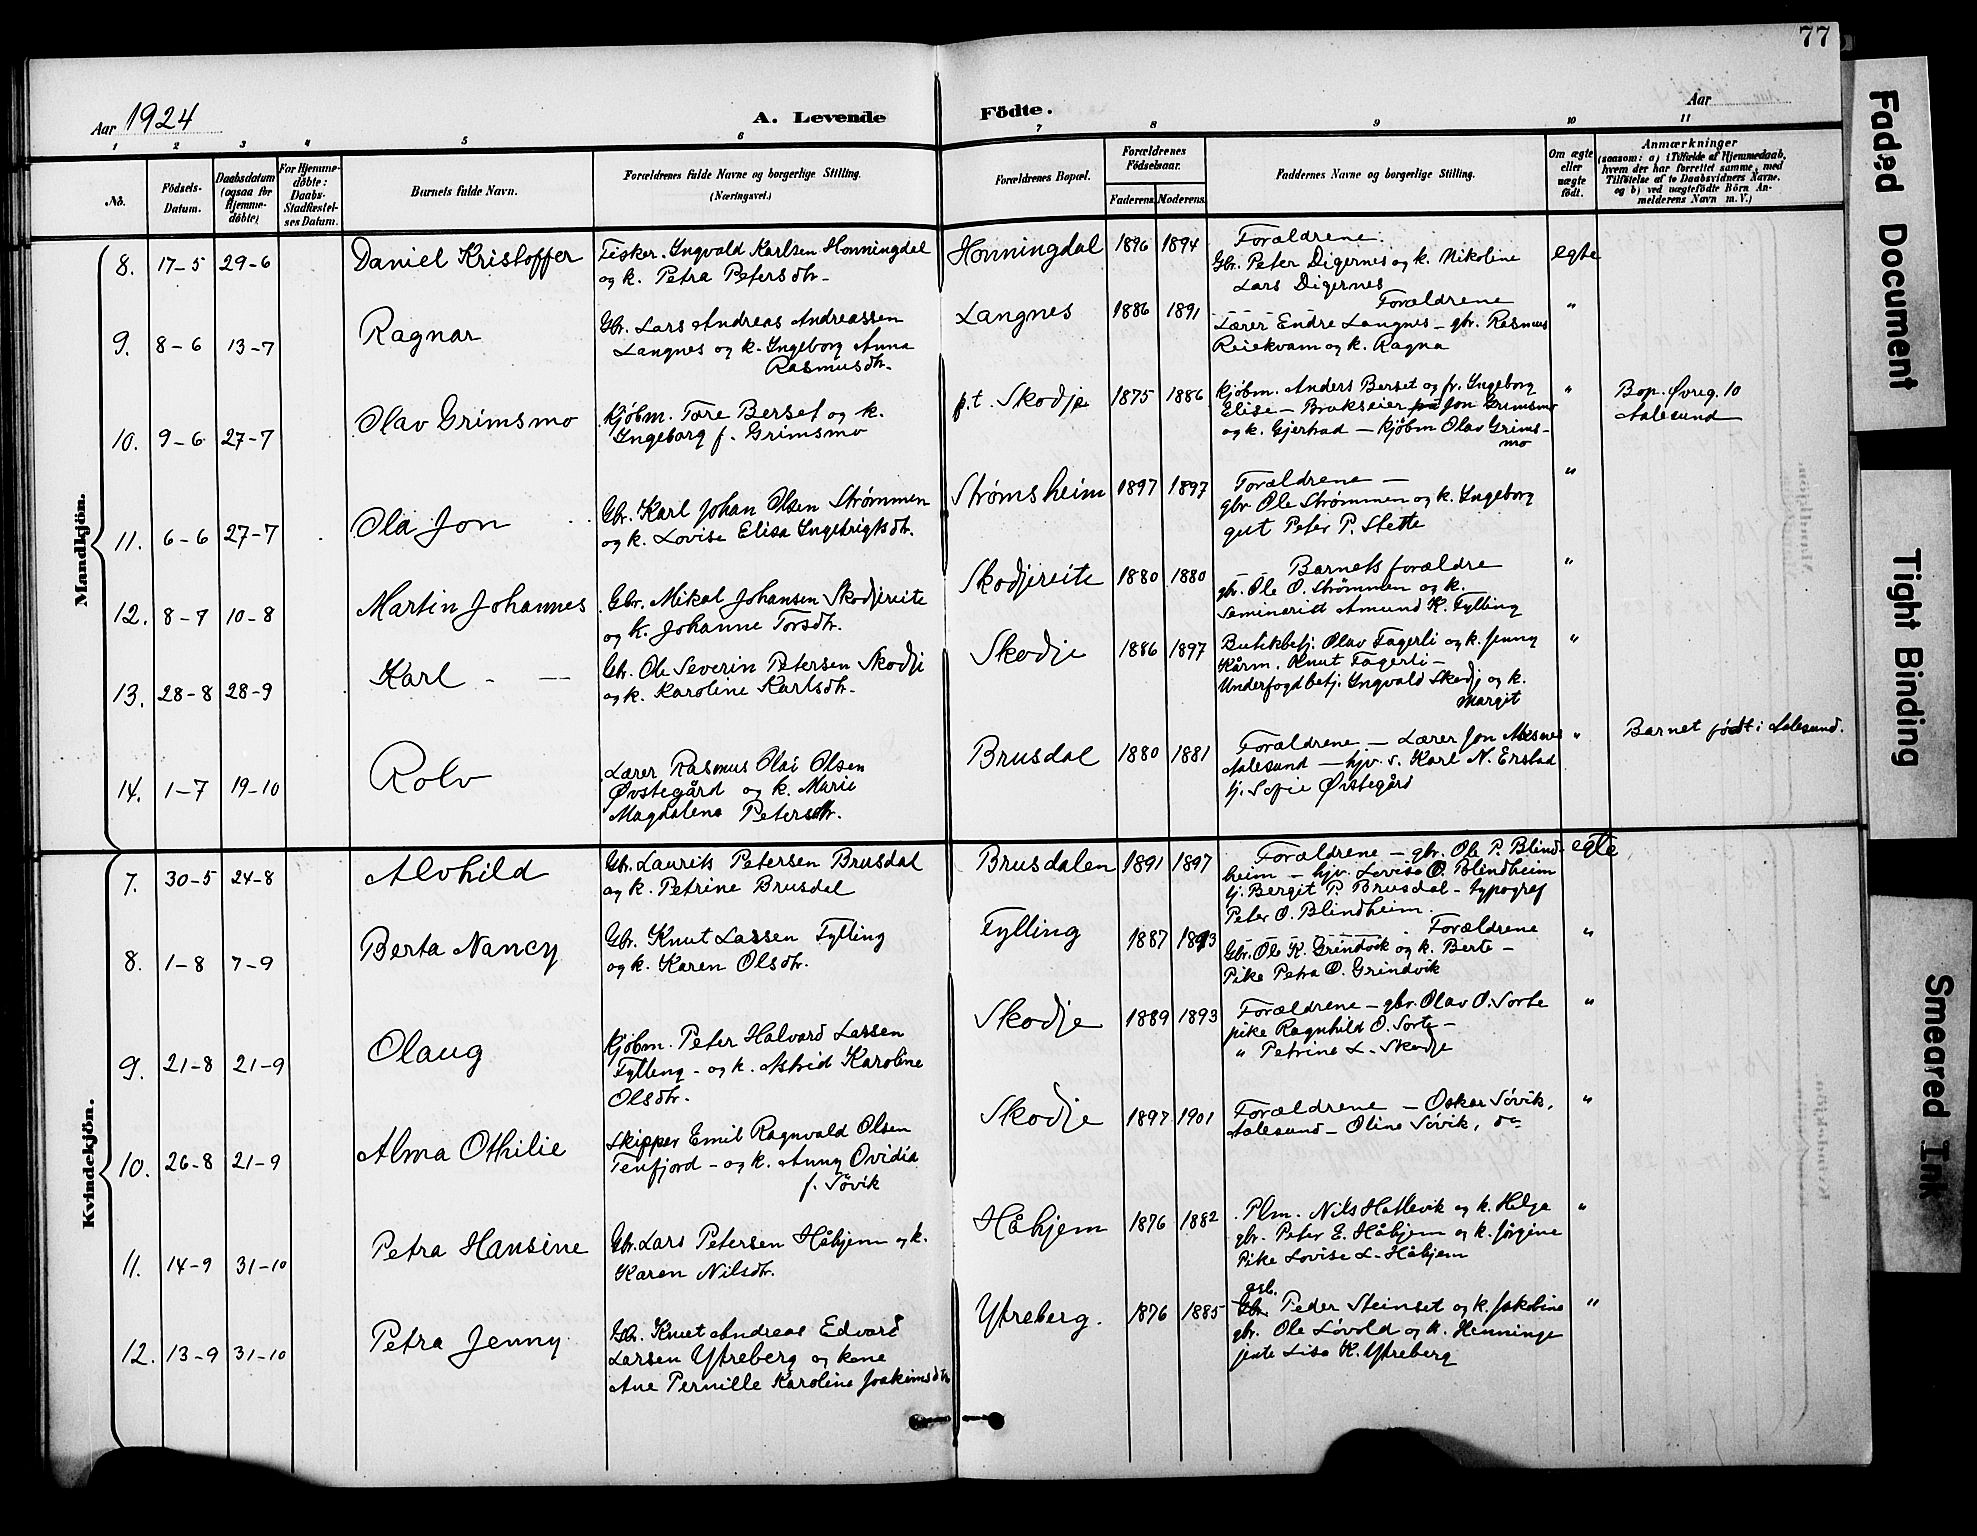 77
Aar 1924
A. Levende
Födte.
Aar
1 2 3 4 5 6 7 8 9 10 11
No.
Födsels-Datum.
Daabsdatum (ogsaa för Hjemmedöbte)
For Hjemmedöbte: Daabs-Stadfæstelses Datum.
Barnets fulde Navn.
Forældrenes fulde Navne og borgerlige Stilling.
(Næringsvei.)
Forældrenes Bopæl.
Forældrenes Födselsaar.
Faderens Moderens
Faddernes Navne og borgerlige Stilling.
Om ægte eller uægte födt.
Anmærkninger
(saasom: a) i Tilfælde af Hjemmedaab,
hvem der har forrettet samme, med
Tilföielse af to Daabsvidners Navne,
og b) ved uægtefödte Börn An-
melderens Navn m. V.)
Mandkjön.
8. 17-5 29-6 Daniel Kristoffer
Fisker. Ingvald Karlsen Honningdal
og k. Petra Petersdtr.
Honningdal 1896 1894
Forældrene.
Gbr. Peter Digernes og k. Nikoline
Lars Digernes
egte
9. 8-6 13-7 Ragnar
Gbr. Lars Andreas Andreassen
Langnes og k. Ingeborg Anna
Rasmusdtr.
Langnes 1886 1891
Forældrene
Lærer Endre Langnes - gbr. Rasmus
Reiekvam og k. Ragna
"
10. 9-6 27-7 Olav Grimsmo
Kjøbm. Tore Berset og k.
Ingeborg f. Grimsmo
p.t. Skodje 1875 1886
Kjøbm. Anders Berset og fr. Ingeborg
Elise - Brukseier Jon Grimsmo
og k. Gjertrud - Kjøbm Olav Grims-
mo
"
Bop. Øvreg. 10
Aalesund
11. 6-6 27-7 Ola Jon
Gbr. Karl Johan Olsen Strømmen
og k. Lovise Elisa Ingebrigtsdtr.
Strømsheim 1897 1897
Forældrene -
gbr Ole Strømmen og k. Ingeborg
gut Peter P. Stette
"
12. 8-7 10-8 Martin Johannes
Gbr. Mikal Johansen Skodjereite
og k. Johanne Torsdtr.
Skodjereite 1880 1880
Barnets forældre
gbr. Ole O. Strømmen og k.
Seminarist Amund K. Fylling
"
13. 28-8 28-9 Karl
Gbr. Ole Severin Petersen Skodje
og k. Karoline Karlsdtr.
Skodje 1886 1897
Butikbetj. Olav Fagerli og k. Jenny
Kårm. Knut Fagerli -
Underfogdbetj. Ingvald Skodj og k.
Margit
"
14. 1-7 19-10 Rolv
Lærer Rasmus Olai Olsen
Øvstegård og k. Marie
Magdalena Petersdtr.
Brusdal 1880 1881
Forældrene - Lærer Jon
Aalesund - hjv. s. Karl N. Erstad
tj. Sofie Øvstegård
"
Barnet født i Aalesund.
Kvindekjön.
7. 30-5 24-8 Alvhild
Gbr. Laurits Petersen Brusdal
og k. Petrine Brusdal
Brusdalen 1891 1897
Forældrene - gbr. Ole P. Blind-
heim - hjv. Lovise O. Blindheim
tj. Bergit P. Brusdal - typograf
Peter O. Blindheim.
egte
8. 1-8 7-9 Berta Nancy
Gbr. Knut Lassen Fylling
og k. Karen Olsdtr.
Fylling 1887 1893
Forældrene
Gbr. Ole K. Grindvik og k. Berte -
Pike Petra O. Grindvik
"
9. 21-8 21-9 Olaug
Kjøbm. Peter Halvard Lassen
Fylling - og k. Astrid Karoline
Olsdtr.
Skodje 1889 1893
Forældrene - gbr. Olav O. Sorte
pike Ragnhild O. Sorte -
" Petrine L. Skodje
"
10. 26-8 21-9 Alma Othilie
Skipper Emil Ragnvald Olsen
Tenfjord - og k. Anny Ovidia
f. Søvik
Skodje 1897 1901
Forældrene - Oskar Søvik,
Aalesund - Oline Søvik, do
"
11. 14-9 31-10 Petra Hansine
Gbr. Lars Petersen Håhjem og k.
Karen Nilsdtr.
Håhjem 1876 1882
Plm. Nils Hatlevik og k. Helga
gbr. Peter E. Håhjem og k. Jørgine
Pike Lovise L. Håhjem
"
12. 13-9 31-10 Petra Jenny
Gbr. Knut Andreas Edvard
Larsen Ytreberg og kone
Ane Pernille Karoline Joakimsdtr
Ytreberg. 1876 1885
Gbr. Peder Steinset og k. Jakobine
gbr. Ole Løvold og k. Henninge
jente Lisa K. Ytreberg
"
Faded Document
Tight Binding
Smeared Ink